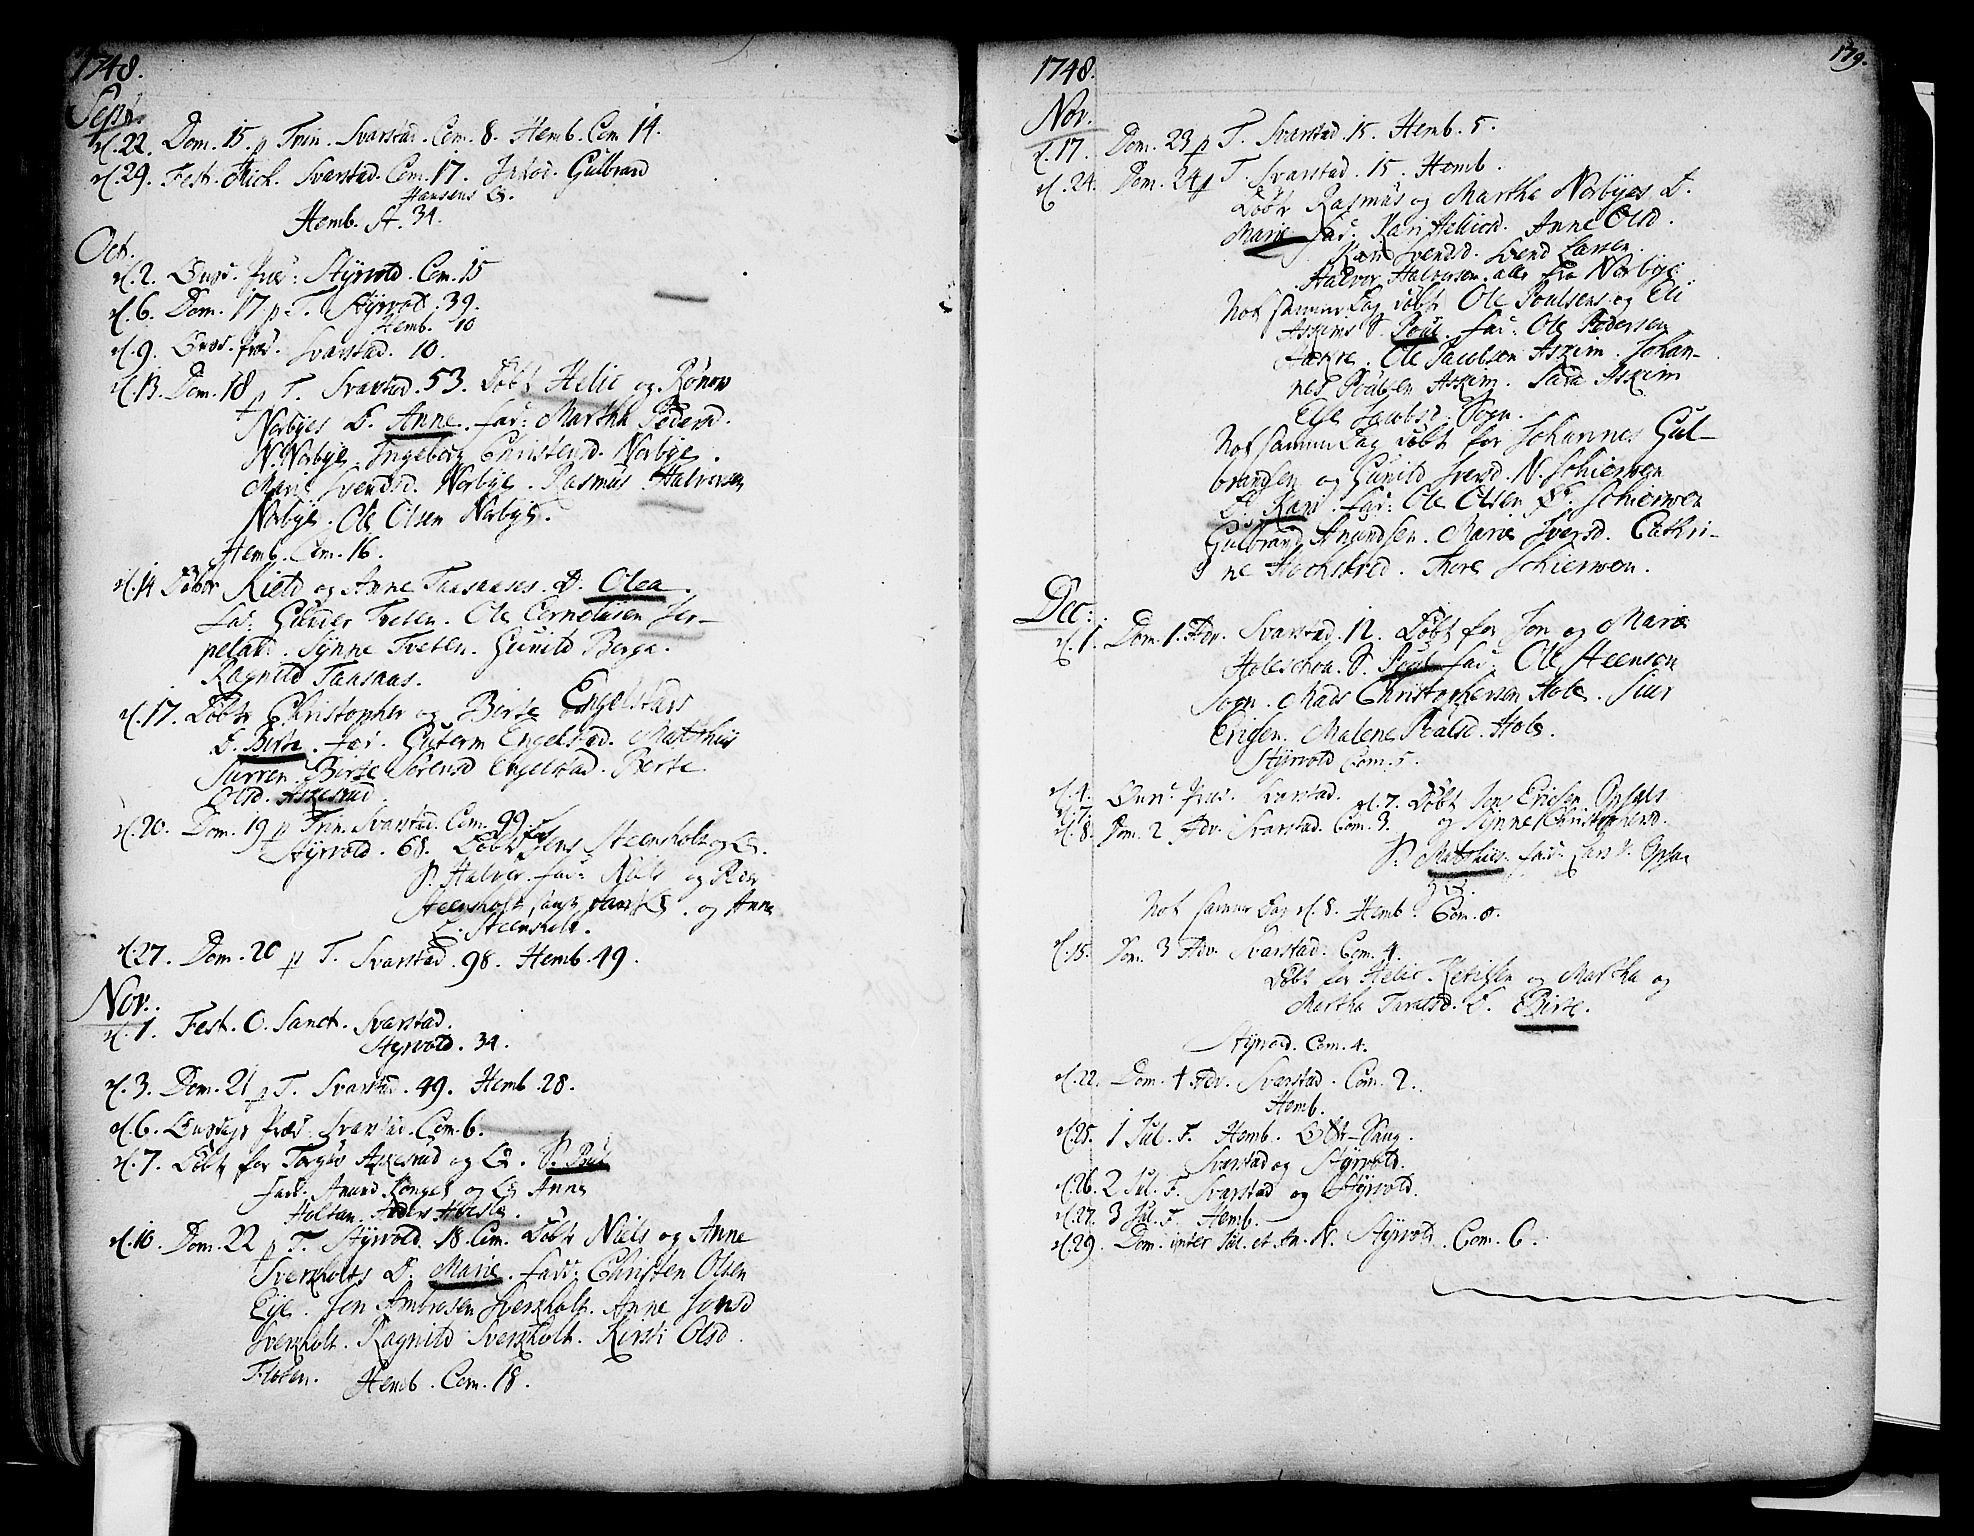 1748.
Sept.
d. 22. Dom. 15. p Trin. Svarstad. Com. 8. Hemb. Com 14.
d. 29. Fest. Mich. Svarstad. Com. 17. Introd. Gulbrand
Hansens
Hemb. A. 34.
Oct.
d. 2. Onsd. Præd: Styrvold. Com. 15
d. 6. Dom. 17 p T. Styrvold. 39.
Hemb. 10
d. 9. Onsd. Præd. Svarstad. 10.
d. 13. Dom. 18 p T. Svarstad. 53. Döbt Helie og Rönow
Norbyes D. Anne. Fad: Martha Pedersd.
N. Norbye Ingeborg Christensd. Norbye.
Marie Svendsd. Norbye. Rasmus Halvorsen
Norbye. Ole Olsen Norbye.
Hemb. Com. 16.
d. 14 Döbt Kield og Anne Taasaases. D. Olea.
Fad: Guder Tveten. Ole Cornelisen Jer-
peland. Synne Tveten. Gunild Berga.
Ragnild Taasaas.
d. 17. Döbt Christopher og Birte Engelstads
D. Birte. Fad. Guterm Engelstad. Matthis
Surren. Birte Sörensd Engelstad. Berte
Olsd. Askesrud.
d. 20. Dom. 19 p Trin. Svarstad. Com. 99.
Styrvold. 68. Döbt Jens Steensholt og
S. Halver. Fad: Niels og
Steensholt og Anne
Steensholt.
d. 27. Dom. 20 p T. Svarstad. 98. Hemb. 49.
Nov.
d. 1. Fest. O. Sanct. Svarstad.
Styrvold. 34.
d. 3. Dom. 21 p T. Svarstad. 49. Hemb. 28.
d. 6. Onsdags Præd. Svarstad. Com. 6.
d. 7. Döbt for Torger Askesrud og S.
Fad. Amund og Anne
Holtan. Anders
d. 10. Dom. 22 p T. Styrvold. 18. Com. Döbt Niels og Anne
Sverkholts D. Marie. Fad: Christen Olsen
Eye. Jon Ambrosen Sverkholt. Anne Jonsd
Sverkholt. Ragnild Sverkholt. Kirsti Olsd.
Floten. Hemb. Com. 18.
179.
1748.
Nov.
d. 17. Dom. 23 p T. Svarstad. 15. Hemb. 5.
d. 24. Dom. 24 p T. Svarstad. 15. Hemb.
Döbt Rasmus og Martha Norbyes D.
Marie Fad: Kari Anne Olsd.
Karen Svendsd. Svend Larsen.
Halvor Halvorsen alle fra Norbye
Nok samme Dag döbt Ole Poulsens og Eli
Askims S. Poul. Fad: Ole Pedersen
Ole Jacobsen Askim. Johan-
nes Poulsen Askim. Sara Askim
Else Jacobsd. Sogn.
Nok samme Dag döbt for Johannes Gul-
brandsen og Gunild Iversd. N. Schierwen
D. Kari. Fad: Ole Olsen Schierwen
Gulbrand Amundsen. Marie Iversd. Cathri-
ne Thore Schierwen.
Dec:
d. 1. Dom. 1. Adv. Svarstad. 12. Döbt for Jon og Marie
S. Poul Fad: Ole Steensen
Sogn. Mads Christophersen Hole. Siur
Ericsen. Malene Poulsd. Hole.
Styrvold Com. 5.
d. 4. Onsd. Præd. Svarstad.
d. 7. Döbt Jens Ericsen Opsals
og Synne Christophersd.
d. 8. Dom. 2. Adv. Svarstad. Com. 3.
S. Matthis. Fad: Lars Opsal
Nok samme Dag d. 8. Hemb. Com. 8.
d. 15. Dom. 3 Adv. Svarstad. Com. 4.
Döbt for Helie Ketilsen og Martha og
Martha D. Birte.
Styrvold. Com. 4.
d. 22. Dom. 4 Adv. Svarstad. Com. 2.
Hemb.
d. 25. 1 Jul. F. Hemb. Ott-Sang.
Svarstad og Styrvold.
d. 26. 2 Jul. F. Svarstad og Styrvold.
d. 27. 3 Jul. F. Hemb.
d. 29. Dom. inter Jul. et An. N. Styrvold. Com. 6.